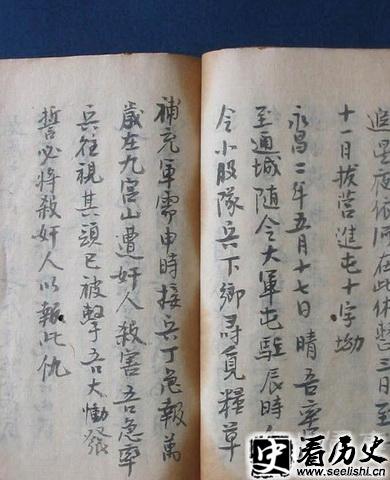 在此休整三日至
十一日拔營進屯十字坳
永昌二年五月十七日晴吾率
至通城随令大軍屯駐辰時
令小股隊兵下鄉尋覓糧草
補充軍需申時接兵丁急報萬
歲在九宮山遭奸人殺害吾急率
兵往視其頭已被擊吾大慟發
誓必將殺奸人以報此仇
史 看历史
www.seelishi.cn